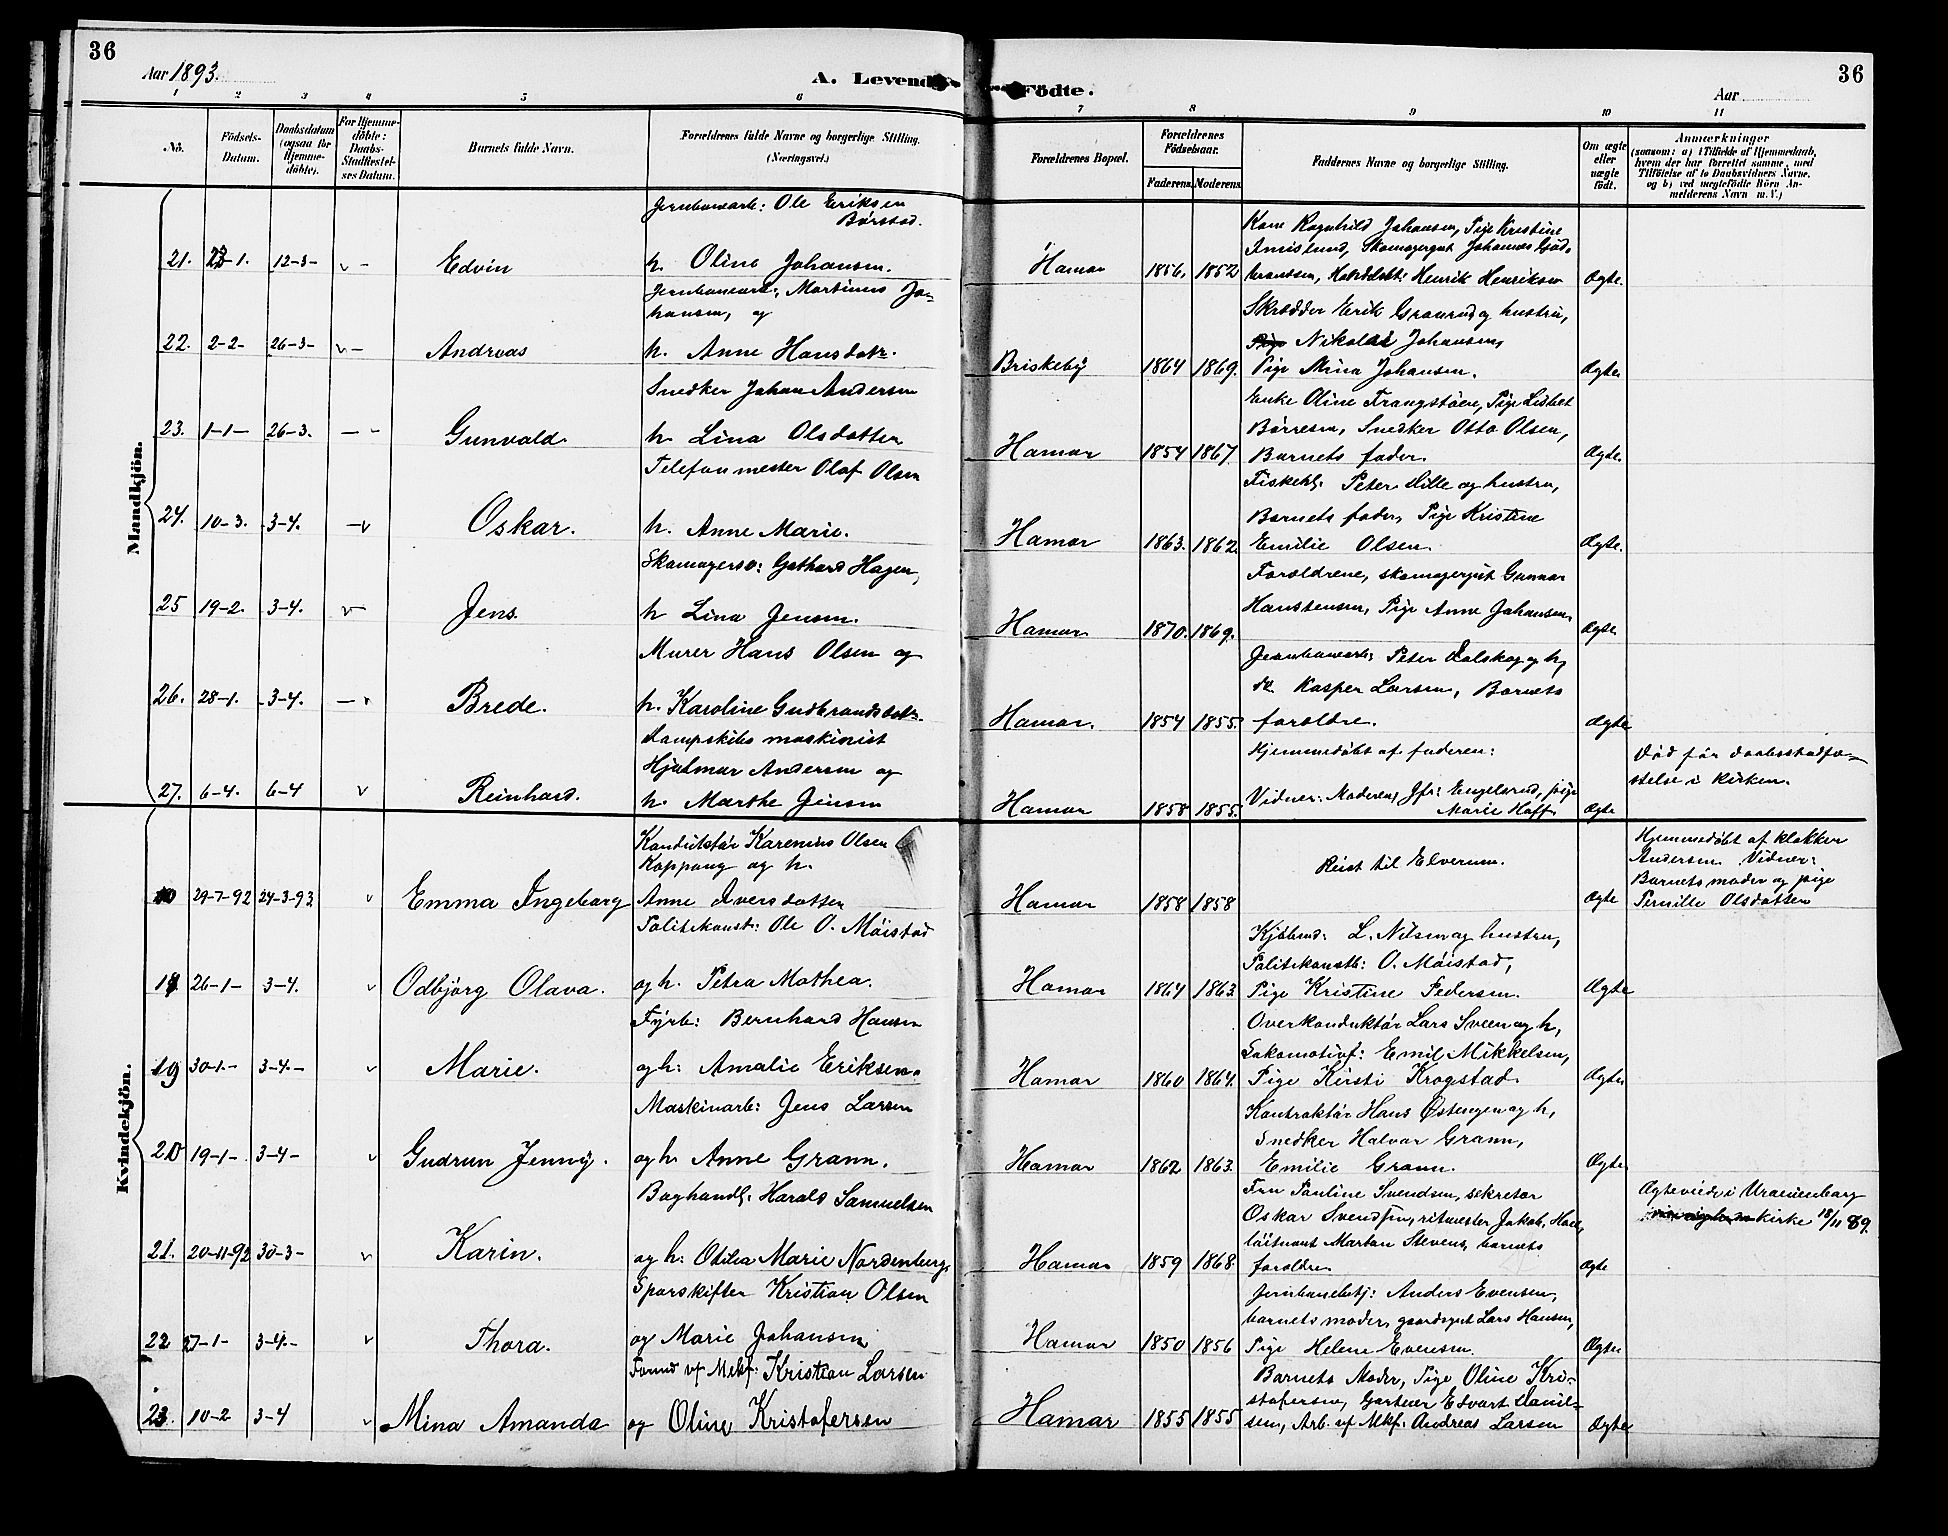 36
Aar 1893.
A. Levende
Fødte.
36
Aar
1 2 3 4 5 6 7 8 9 10 11
No.
Fødsels-Datum.
Daabsdatum (ogsaa for Hjemme-døbte).
For Hjemme-døbte: Daabs-Stadfæstel-ses Datum.
Barnets fulde Navn.
Forældrenes fulde Navne og borgerlige Stilling. (Næringsvei.)
Forældrenes Bopæl.
Forældrenes Fødselsaar.
Faderens. Moderens.
Faddernes Navne og borgerlige Stilling.
Om ægte eller uægte født.
Anmærkninger (saasom: a) i Tilfælde af Hjemmedaab, hvem der har forrettet samme, med Tilføielse af to Daabsvidners Navne, og b) ved uægtefødte Børn An-melderens Navn m. V.)
Mandkjøn.
Jernbanearb: Ole Eriksen
Børstad.
21. 23-1. 12-3- v - Edvin h. Oline Johansen. Hamar 1856. 1852
Kone Ragnhild Johansen, Pige Kristine
Skomagergut Johannes
Henrik Henriksen Ægte.
Jernbanearb:, Martinus Jo-
hansen, og
22. 2-2- 26-3- v- Andreas h. Anne Hansdatr. Briskeby 1864 1869.
Skrædder Erik Granrud og hustru,
Nikolai Johansen,
Pige Mina Johansen. Ægte
Snedker Johan Andersen
23. 1-1- 26-3. - - Gunvald h. Lina Olsdatter Hamar 1854 1867.
Enke Oline Frangstøen, Pige Lisbet
Børresen, Snedker Otto Olsen,
Barnets fader. Ægte.
Telefonmester Olaf Olsen
24. 10-3. 3-4. -v Oskar. h. Anne Marie. Hamar 1863. 1862.
Fiskehl: Peter Lille og hustru,
Barnets fader, Pige Kristine
Emilie Olsen. Ægte.
Skomagersv: Gothard Hagen,
25 19-2. 3-4. v- Jens. h Lina Jensen. Hamar 1870. 1869.
Forældrene, skomagergut Gunnar
Hanstensen, Pige Anne Johansen. Ægte
Murer Hans Olsen og
26. 28-1. 3-4. - v Brede. h. Karoline Gudbrandsdatr. Hamar. 1854 1855.
Jernbanearb: Peter Dalskog og h,
do Kasper Larsen, Barnets
forældre. Ægte
Dampskibs maskinist
Hjalmar Andersen og
27. 6-4. 6-4 v Reinhard. h. Marthe Jensen Hamar 1858 1855.
Hjemmedøbt af faderen:
Vidner: Moderen, Jfr: Engelsrud, pige
Marie Hoff Ægte
Død før daabsstadfæ-
stelse i kirken.
Kvindekjøn.
Konduktør Karenius Olsen
Koppang og h.
29-7-92 24-3-93 v Emma Ingeborg Anne Iversdatter Hamar 1858 1858
Reist til Elverum.
Ægte
Hjemmedøbt af klokker
Andersen. Vidner:
Barnets moder og pige
Pernille Olsdatter
Politikonst: Ole O. Møistad
18 26-1- 3-4. v Odbjørg Olava. og h. Petra Mathea. Hamar 1864 1863
Kjøbmd: L. Nilsen og hustru,
Politikonstb: O. Møistad,
Pige Kristine Pedersen. Ægte
Fyrb: Bernhard Hansen
19 30-1.- 3-4.- v Marie. og h: Amalie Eriksen. Hamar 1860 1864.
Overkonduktør Lars Sveen og h,
Lokomotivf: Emil Mikkelsen,
Pige Kirsti Krogstad. Ægte
Maskinarb: Jens Larsen
20 19-1-. 3-4- v Gudrun Jenny. og h. Anne Grann. Hamar 1862 1863.
Kontraktør Hans Østengen og h,
Snedker Halvor Grann,
Emilie Grann. Ægte
Boghandl: Harald Samuelsen
21. 20-11-92 30-3- v Karin. og h: Otilia Marie Nordenborg. Hamar 1859 1868.
Fru Pauline Svendsen, sekretær
Oskar Svendsen, ritmester Jakob,
løitnant Morten Stevens, barnets
forældre Ægte
Ægteviede i Uranienborg
kirke 18/11 89.
Sporskifter Kristian Olsen
22 27-1- 3-4.- v Thora. og Marie Johansen Hamar 1850 1856
Jernbanebetj: Anders Evensen,
barnets moder, gaardsgut Lars Hansen,
Pige Helene Evensen. Ægte
Formd vf Mekf: Kristian Larsen
23. 10-2 3-4 v Mina Amanda og Oline Kristofersen Hamar 1855 1855
Barnets Moder, Pige Oline Kri-
stofersen, Gartner Edvart Daniel-
sen, Arb. vf Mkf: Andreas Larsen Ægte